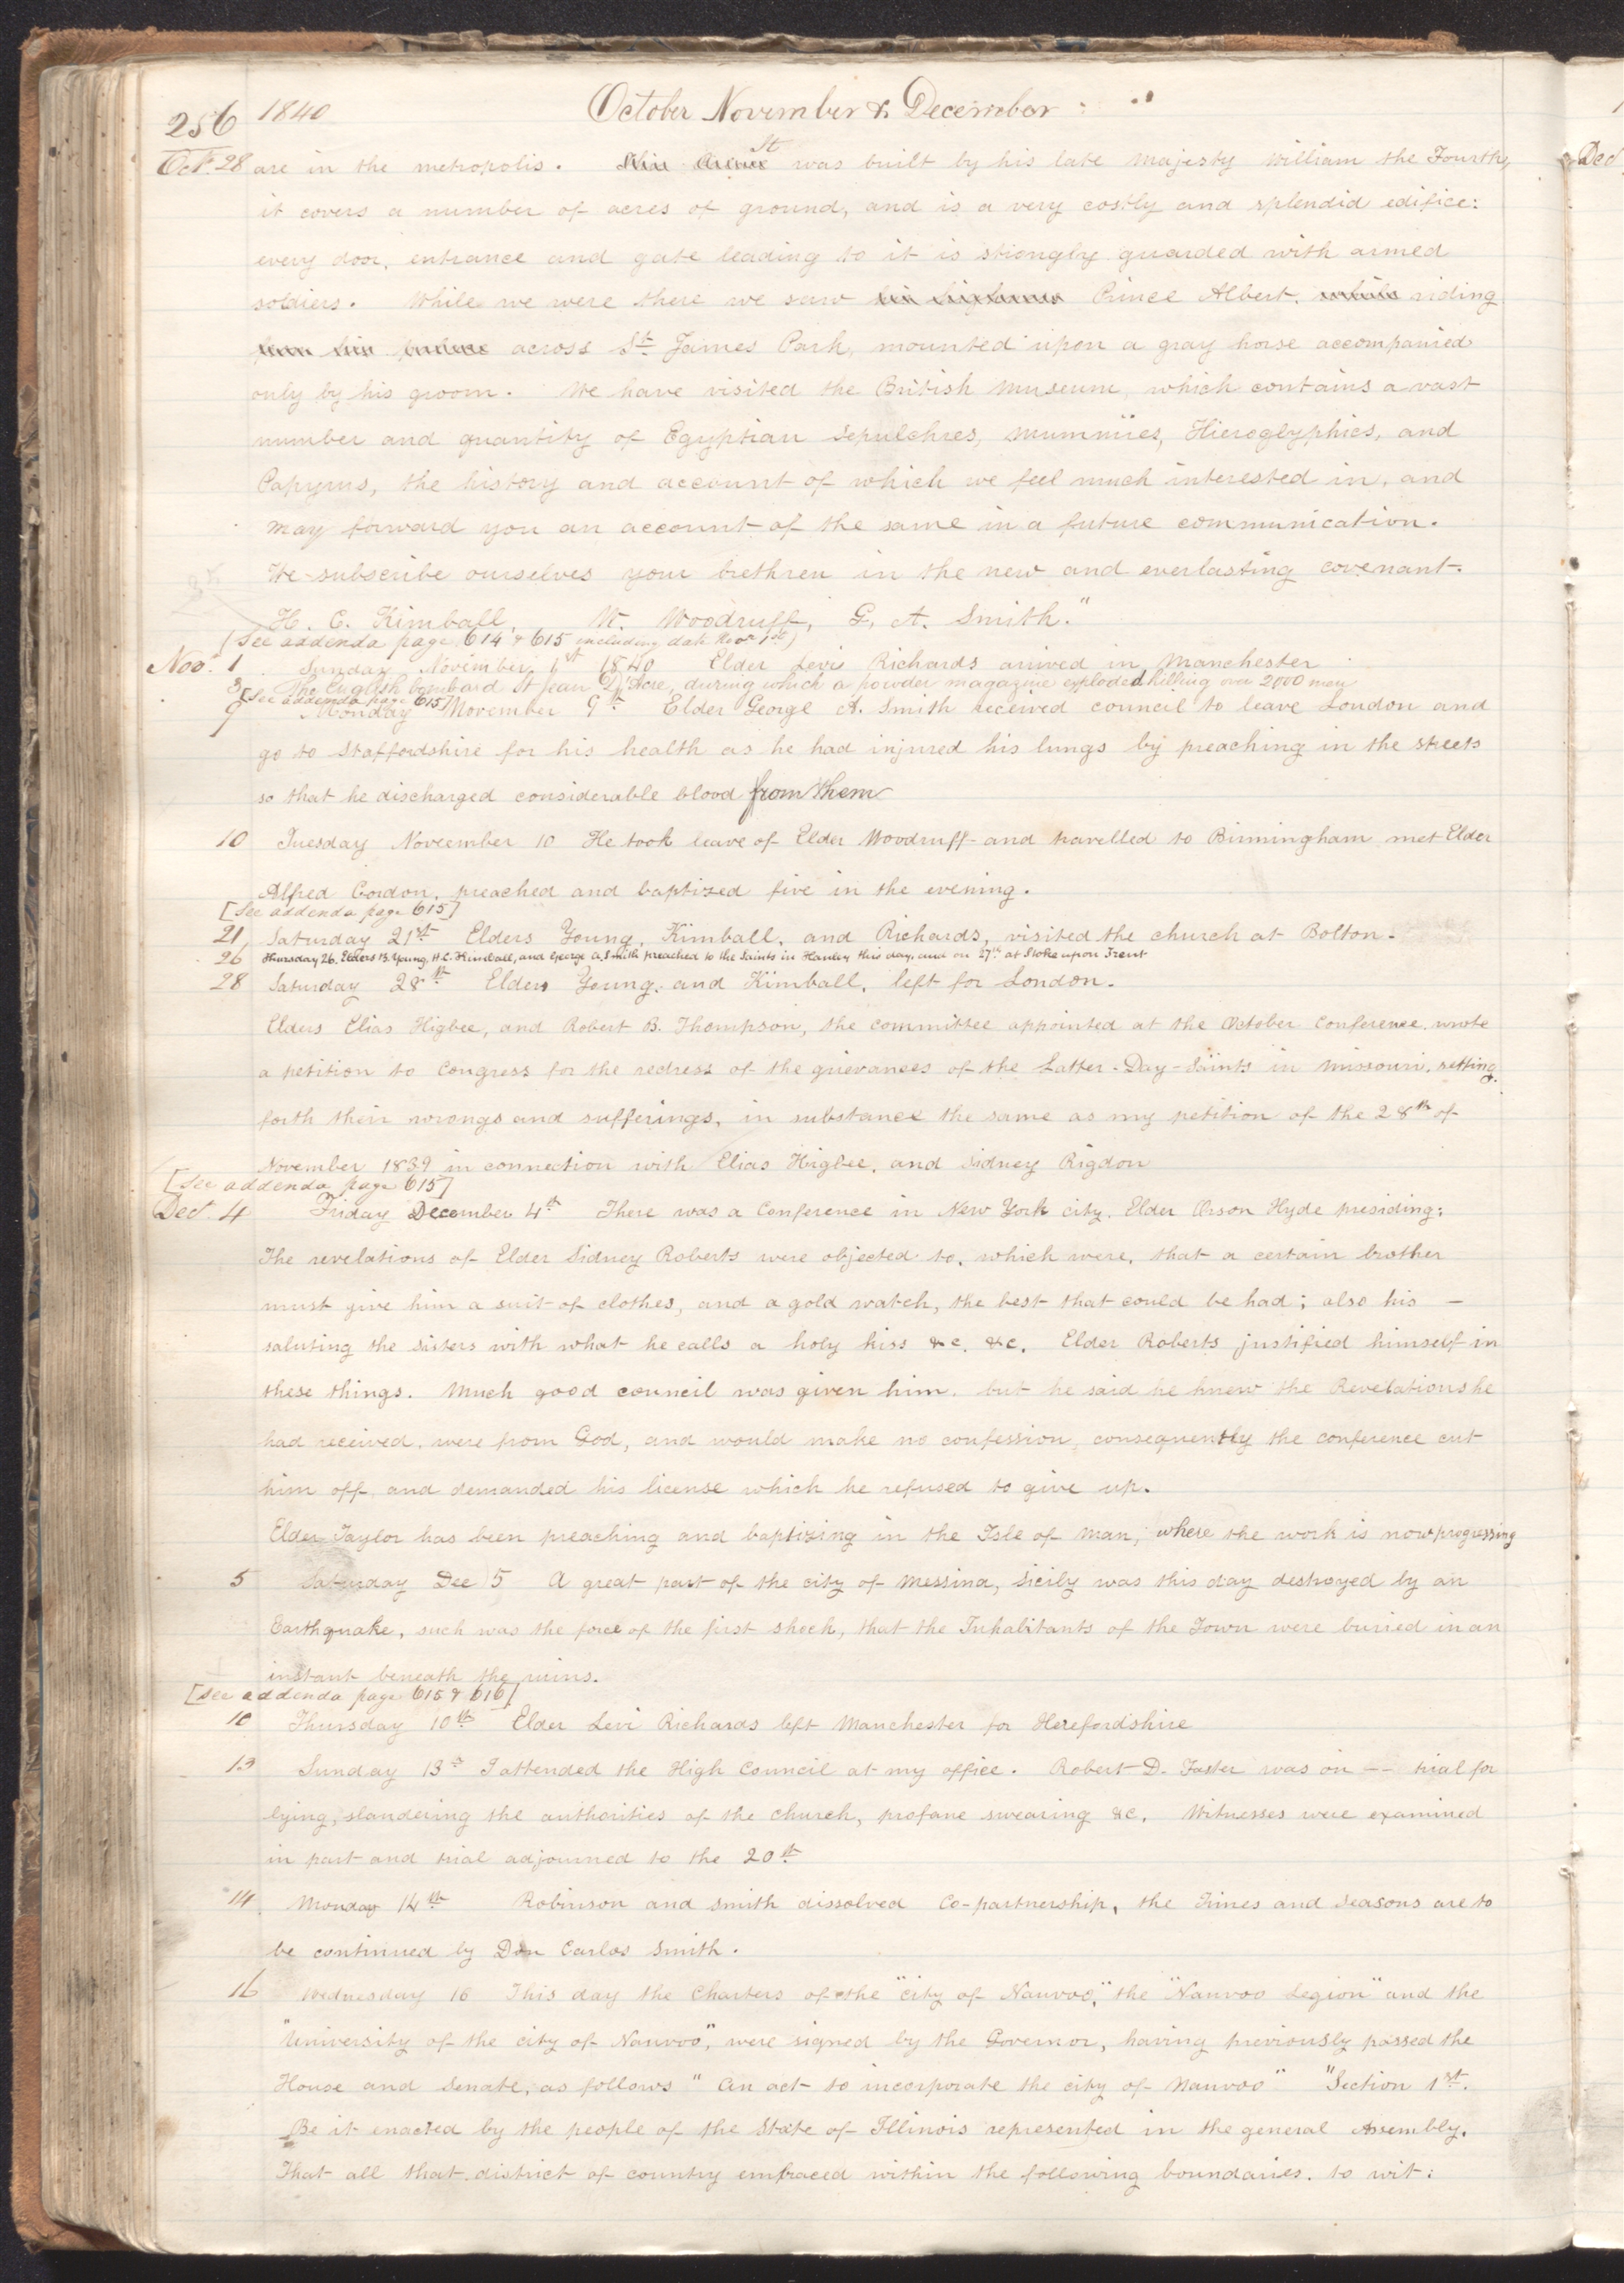 256 1840 October November & December
Oct. 28 are in the metropolis. It was built by his late Majesty William the Fourth,
it covers a number of acres of ground, and is a very costly and splendid edifice:
every door, entrance and gate leading to it is strongly guarded with armed
soldiers. While we were there we saw Prince Albert, while riding
across St James Park, mounted upon a gray horse accompanied
only by his groom. We have visited the British Museum, which contains a vast
number and quantity of Egyptian Sepulchres, Mummies, Hieroglyphics, and
Papyrus, the history and account of which we feel much interested in, and
may forward you an account of the same in a future communication.
We subscribe ourselves your brethren in the new and everlasting covenant.
H. C. Kimball, W. Woodruff, G. A. Smith."
(See addenda page 614 & 615 including date Nov 1st)
Nov. 1 Sunday November 1st 1840 Elder Levi Richards arived in Manchester
3 The English bombard St Jean D'Acre, during which a powder magazine exploded killing over 2000 men
[See addenda page 615]
9 Monday November 9th Elder George A. Smith received council to leave London and
go to Staffordshire for his health as he had injured his lungs by preaching in the streets
so that he discharged considerable blood from them
10 Tuesday November 10 He took leave of Elder Woodruff and travelled to Birmingham met Elder
Alfred Cordon, preached and baptized five in the evening.
[See addenda page 615]
21, Saturday 21st Elders Young, Kimball, and Richards, visited the church at Bolton.
26 Thursday 26. Elders B. Young, H. C. Kimball, and George A. Smith preached to the Saints in Hanley this day, and on 27th at Stoke upon Trent
28 Saturday 28th Elders Young, and Kimball, left for London.
Elders Elias Higbee, and Robert B. Thompson, the committee appointed at the October Conference, wrote
a petition to Congress for the redress of the grievances of the Latter-Day-Saints in Missouri, setting
forth their wrongs and sufferings, in substance the same as my petition of the 28th of
November 1839 in connection with Elias Higbee, and Sidney Rigdon
[See addenda page 615]
Dec. 4 Friday December 4th There was a Conference in New York city, Elder Orson Hyde presiding;
The revelations of Elder Sidney Roberts were objected to, which were, that a certain brother
must give him a suit of clothes, and a gold watch, the best that could be had; also his —
saluting the sisters with what he calls a holy kiss &c. &c. Elder Roberts justified himself in
these things. Much good council was given him, but he said he knew the Revelations he
had received, were from God, and would make no confession, consequently the conference cut
him off, and demanded his license which he refused to give up.
Elder Taylor has been preaching and baptizing in the Isle of Man, where the work is now progressing
5 Saturday Dec 5 A great part of the city of Messina, Sicily was this day destroyed by an
Earthquake, such was the force of the first shock, that the Inhabitants of the Town were buried in an
instant beneath the ruins.
[See addenda page 615 & 616]
10 Thursday 10th Elder Levi Richards left Manchester for Herefordshire
13 Sunday 13th I attended the High Council at my office. Robert D. Foster was on -- trial for
lying, slandering the authorities of the church, profane swearing &c. Witnesses were examined
in part and trial adjourned to the 20th
14 Monday 14th Robinson and Smith dissolved Co-partnership, the Times and Seasons are to
be continued by Don Carlos Smith.
16 Wednesday 16 This day the Charters of the "city of Nauvoo," the "Nauvoo Legion" and the
"University of the city of Nauvoo", were signed by the Governor, having previously passed the
House and Senate, as follows "An act to incorporate the city of Nauvoo" "Section 1st.
Be it enacted by the people of the State of Illinois represented in the general Assembly.
That all that district of country embraced within the following boundaries, to wit:
Dec